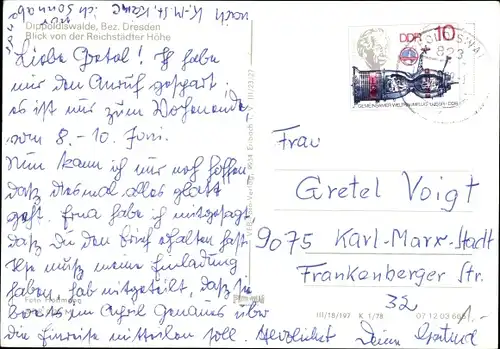 nach K-M-St. kame
ich Sonn
abd.
Dippoldiswalde, Bez. Dresden
Blick von der Reichstädter Höhe
Liebe Gretel! Ich habe
mir den Anruf gespart.
es ist nur zum Wochenende
vom 8.-10. Juni.
Nun kann ich nur noch hoffen,
daß diesmal alles glatt
geht. Erna habe ich mitgeteilt,
daß Du den Brief erhalten hast.
muß meine Einladung
haben, hab mitgeteilt, daß
bereits im April Genaues über
die Einreise mitteilen soll. Herzlichst Deine
Foto:
III/18/197 K 1/78 07 12 03 66
DDR 10
GEMEINSAMER WELTRAUMFLUG UdSSR-DDR
823
Frau
Gretel Voigt
9075 Karl-Marx-Stadt
Frankenberger Str.
32
1.-